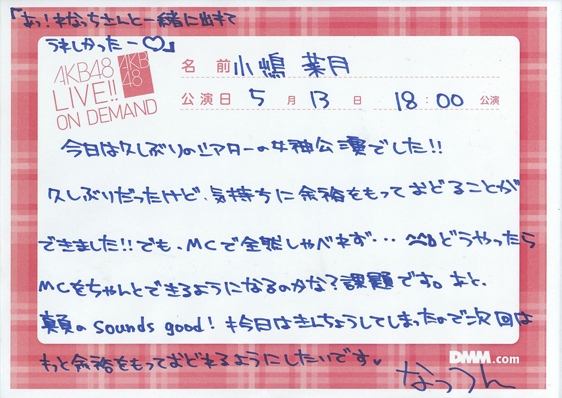 「あっ！まなっちさんと一緒に出れて
うれしかったー♡」
AKB48
LIVE!!
ON DEMAND
AKB
48
名 前 小嶋 菜月
公演日 5 月 13 日 18:00 公演
今日は久しぶりのシアターの女神公演でした!!
久しぶりだったけど、気持ちに余裕をもっておどることが
できました!!でも、MCで全然しゃべれず・・・どうやったら
MCをちゃんとできるようになるのかな?課題です。あと、
真夏のSounds good!も今日はきんちょうしてしまったので次回は
もっと余裕をもっておどれるようにしたいです♥
DMM.com
なっつん